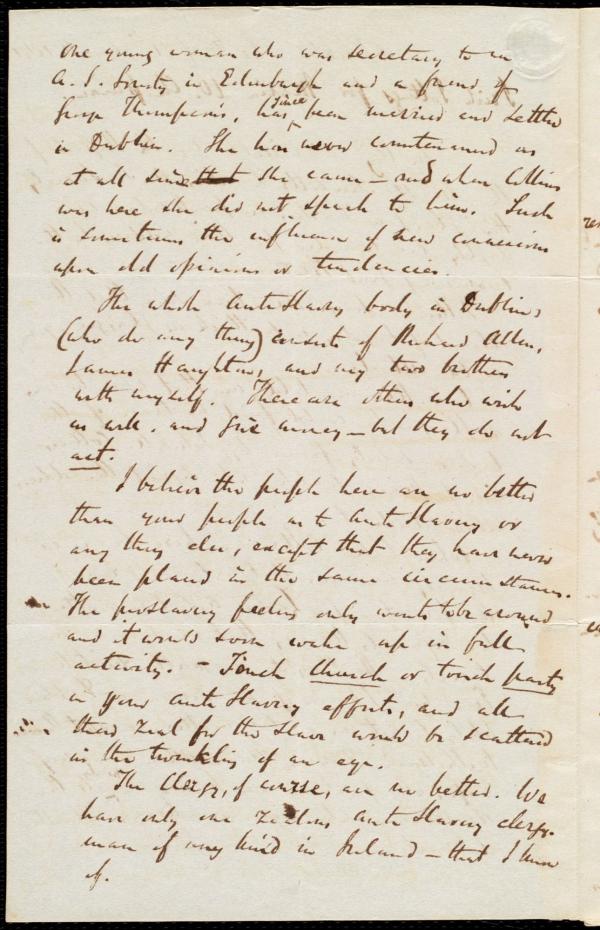 one young woman who was secretary to an
A. S. Society in Edinburgh and a friend of
George Thompson's, has since been married and settled
in Dublin. She has never countenanced us
at all since she came — and when Collins
was here she did not speak to him. Such
is sometimes the influence of new connexions
upon old opinions or tendencies.
The whole Anti Slavery body in Dublin,
(who do any thing) consists of Richard Allen,
James Haughton, and my two brothers
with myself. There are others who wish
us well, and give money — but they do not
act.
I believe the people here are no better
than your people as to Anti Slavery or
any thing else, except that they have never
been placed in the same circumstances.
The proslavery feeling only wants to be aroused
and it would soon wake up in full
activity. — Touch Church or touch party
in your Anti Slavery efforts, and all
their zeal for the Slave would be scattered
in the twinkling of an eye.
The Clergy, of course, are no better. We
have only one zealous Anti Slavery clergy-
man of any kind in Ireland — that I know
of.